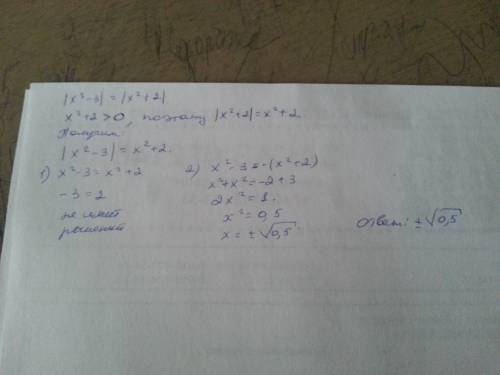 |x²-3| = |x²+2|
x²+2>0, поэтому |x²+2|=x²+2.
Получим:
|x²-3| = x²+2.
1) x²-3=x²+2
-3=2
не имеет
решений
2) x²-3=-(x²+2)
x²+x²=-2+3
2x²=1.
x²=0,5
x=±√0,5.
Ответ: ±√0,5